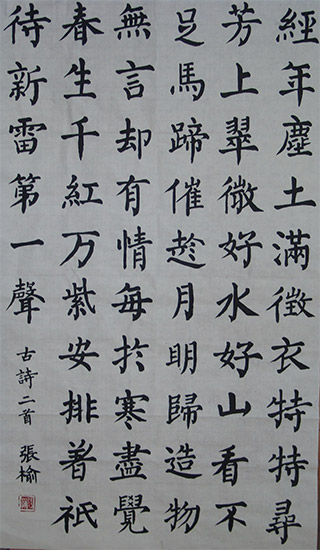 經年塵土滿徵衣特特尋
芳上翠微好水好山看不
足馬蹄催趁月明歸造物
無言却有情每於寒盡覺
春生千紅万紫安排着祇
待新雷第一聲
古詩二首 張榆